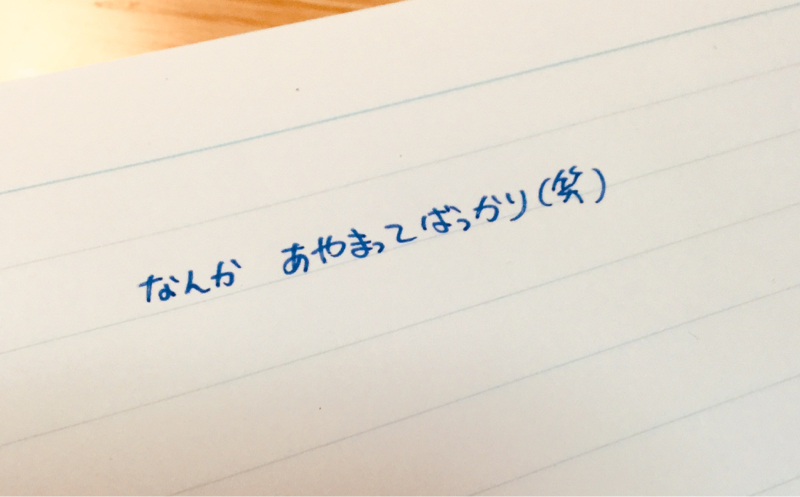 なんか　あやまってばっかり(笑)